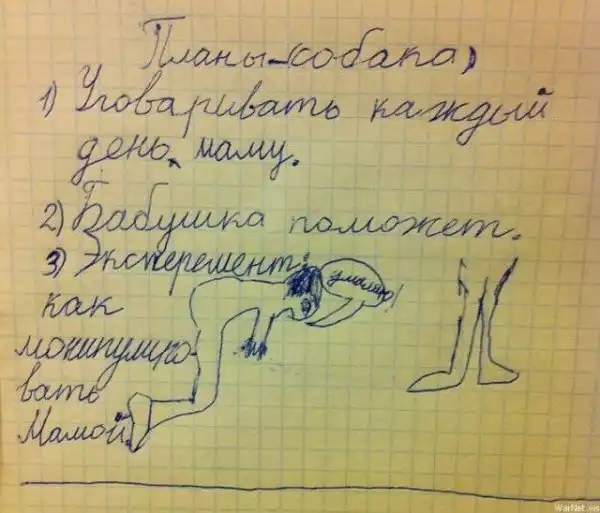 Планы-(собака)
1) Уговаривать каждый
день маму.
2) Бабушка поможет.
3) Эксперемент:
как
монипулиро-
вать
Мамой.
умаляю!
WarNet.ws